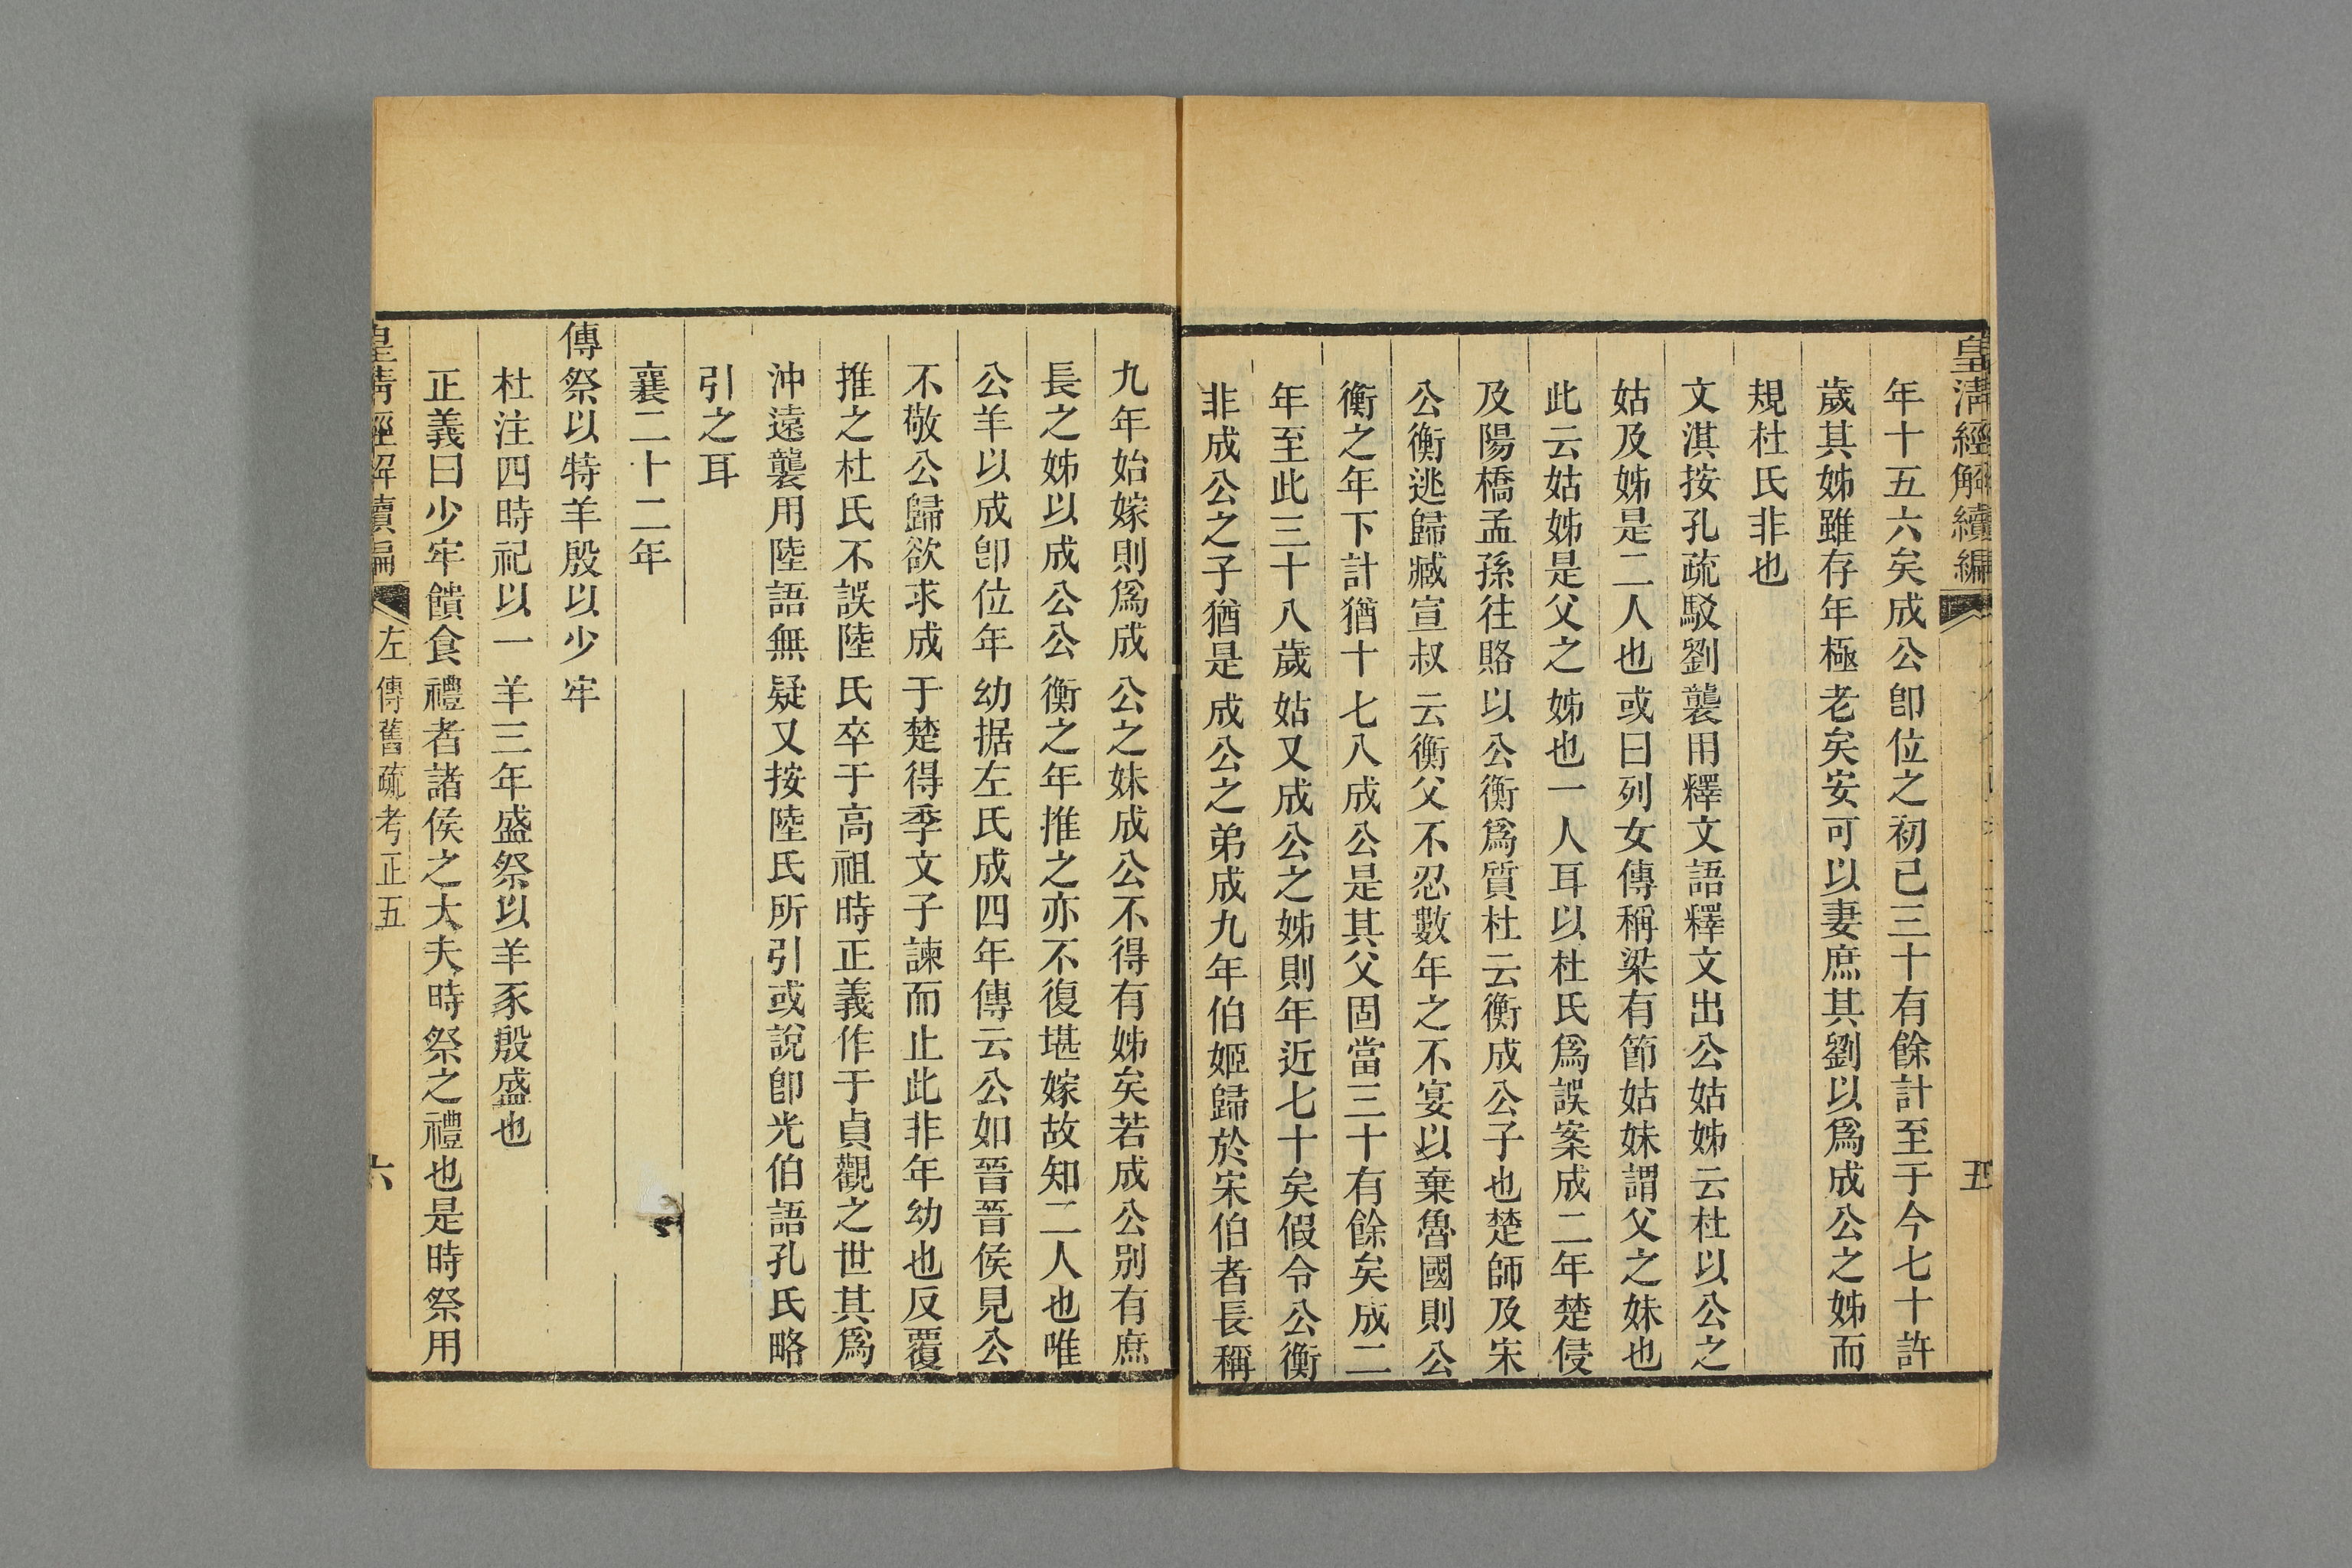 皇清經解續編
五
年十五六矣成公卽位之初已三十有餘計至于今七十許
歲其姊雖存年極老矣安可以妻庶其劉以爲成公之姊而
規杜氏非也
文淇按孔疏駁劉襲用釋文語釋文出公姑姊云杜以公之
姑及姊是二人也或曰列女傳稱梁有節姑妹謂父之妹也
此云姑姊是父之姊也一人耳以杜氏爲誤案成二年楚侵
及陽橋孟孫往賂以公衡爲質杜云衡成公子也楚師及宋
公衡逃歸臧宣叔云衡父不忍數年之不宴以棄魯國則公
衡之年下計猶十七八成公是其父固當三十有餘矣成二
年至此三十八歲姑又成公之姊則年近七十矣假令公衡
非成公之子猶是成公之弟成九年伯姬歸於宋伯者長稱
九年始嫁則爲成公之妹成公不得有姊矣若成公別有庶
長之姊以成公公衡之年推之亦不復堪嫁故知二人也唯
公羊以成卽位年幼据左氏成四年傳云公如晉晉侯見公
不敬公歸欲求成于楚得季文子諫而止此非年幼也反覆
推之杜氏不誤陸氏卒于高祖時正義作于貞觀之世其爲
沖遠襲用陸語無疑又按陸氏所引或說卽光伯語孔氏略
引之耳
襄二十二年
傳祭以特羊殷以少牢
杜注四時祀以一羊三年盛祭以羊豕殷盛也
正義曰少牢饋食禮者諸侯之大夫時祭之禮也是時祭用
皇清經解續編
左傳舊疏考正五
六